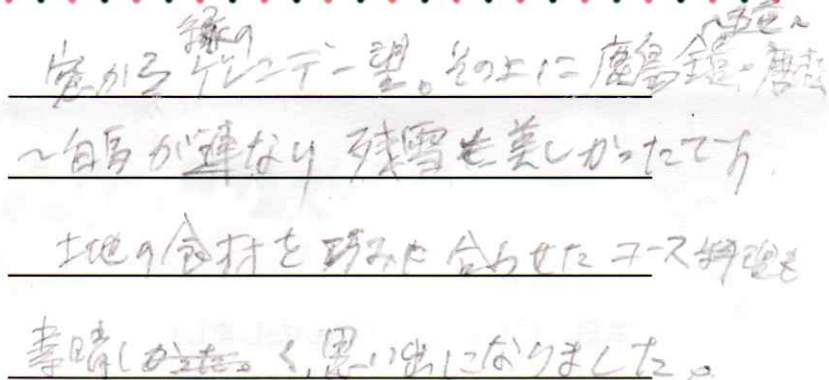 窓から緑のゲレンデ一望。その上に鹿島鎗~五竜~唐松
~白馬が連なり残雪も美しかったです。
土地の食材を巧みに合わせたコース料理も
素晴しく、思い出になりました。